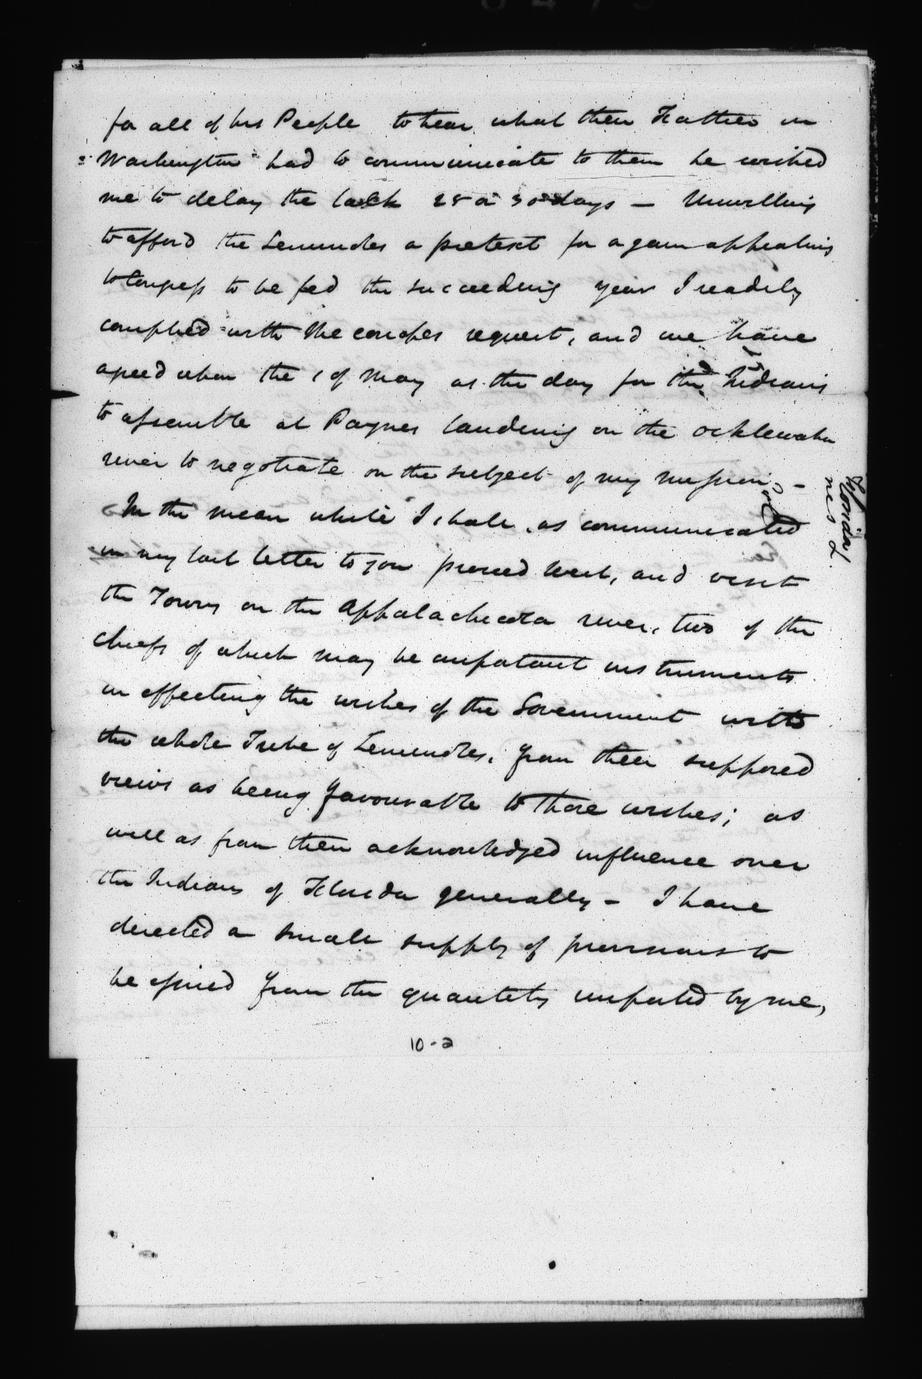 for all of his People to hear what their Father in
Washington had to communicate to them he wished
me to delay the talk 25 or 30 days — Unwilling
to afford the Seminoles a pretext for again appealing
to Congress to be fed the succeeding year I readily
complied with Miconopes request, and we have
agreed upon the 1 of May as the day for the Indians
to assemble at Paynes landing on the Ocklewaha
river to negotiate on the subject of my mission —
In the mean while I shall, as communicated
in my last letter to you proceed West, and visit
the Towns on the Appalachicola river, two of the
chiefs of which may be important instruments
in effecting the wishes of the Government with
the whole Tribe of Seminoles, from their supposed
views as being favourable to those wishes; as
well as from their acknowledged influence over
the Indians of Florida generally — I have
directed a small supply of provisions to
be issued from the quantity imported by me,
10-2